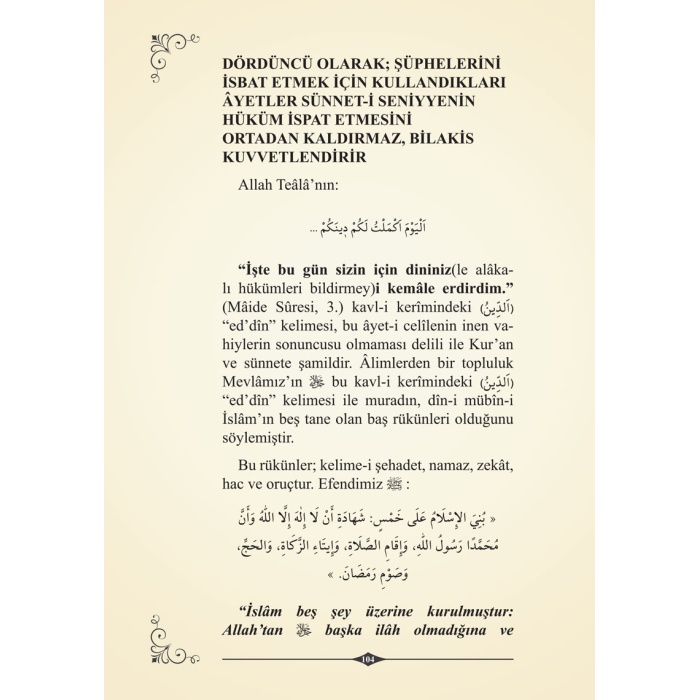 DÖRDÜNCÜ OLARAK; ŞÜPHELERİNİ
İSBAT ETMEK İÇİN KULLANDIKLARI
ÂYETLER SÜNNET-İ SENİYYENİN
HÜKÜM İSPAT ETMESİNİ
ORTADAN KALDIRMAZ, BİLAKİS
KUVVETLENDİRİR
Allah Teâlâ’nın:
اَلْيَوْمَ اَكْمَلْتُ لَكُمْ د۪ينَكُمْ ...
“İşte bu gün sizin için dininiz(le alâka-
lı hükümleri bildirmey)i kemâle erdirdim.”
(Mâide Sûresi, 3.) kavl-i kerîmindeki (اَلدِّينُ)
“ed’dîn” kelimesi, bu âyet-i celîlenin inen va-
hiylerin sonuncusu olmaması delili ile Kur’an
ve sünnete şamildir. Âlimlerden bir topluluk
Mevlâmız’ın ﷻ bu kavl-i kerîmindeki (اَلدِّينُ)
“ed’dîn” kelimesi ile muradın, dîn-i mübîn-i
İslâm’ın beş tane olan baş rükünleri olduğunu
söylemiştir.
Bu rükünler; kelime-i şehadet, namaz, zekât,
hac ve oruçtur. Efendimiz ﷺ :
« بُنِيَ الإِسْلَامُ عَلَى خَمْسٍ: شَهَادَةِ أَنْ لَا إِلٰهَ إِلَّا اللّٰهُ وَأَنَّ
مُحَمَّدًا رَسُولُ اللّٰهِ، وَإِقَامِ الصَّلَاةِ، وَإِيتَاءِ الزَّكَاةِ، وَالحَجِّ،
وَصَوْمِ رَمَضَانَ. »
“İslâm beş şey üzerine kurulmuştur:
Allah’tan ﷻ başka ilâh olmadığına ve
104